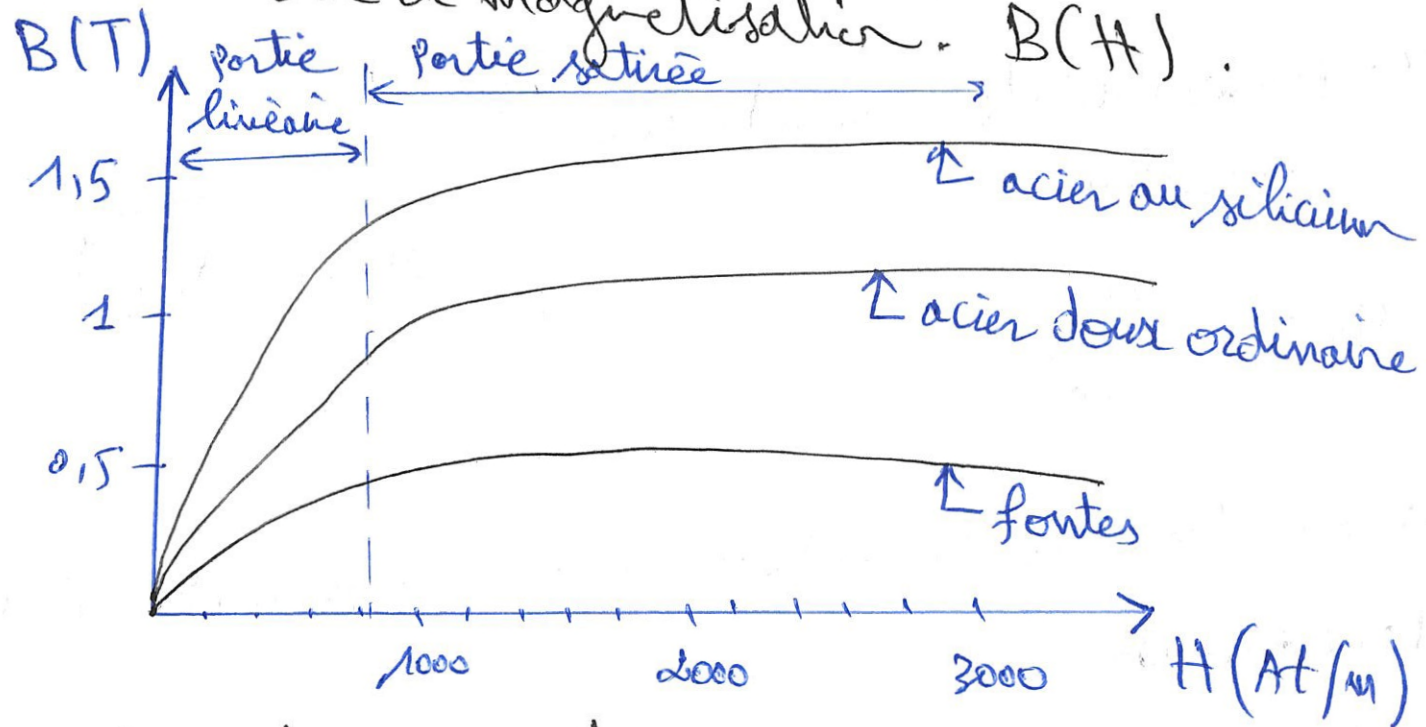 magnetisation. B(H).
B(T)
Partie
linéaire
Partie saturée
1,5
acier au silicium
1
acier doux ordinaire
0,5
fontes
1000
2000
3000
H(At/m)